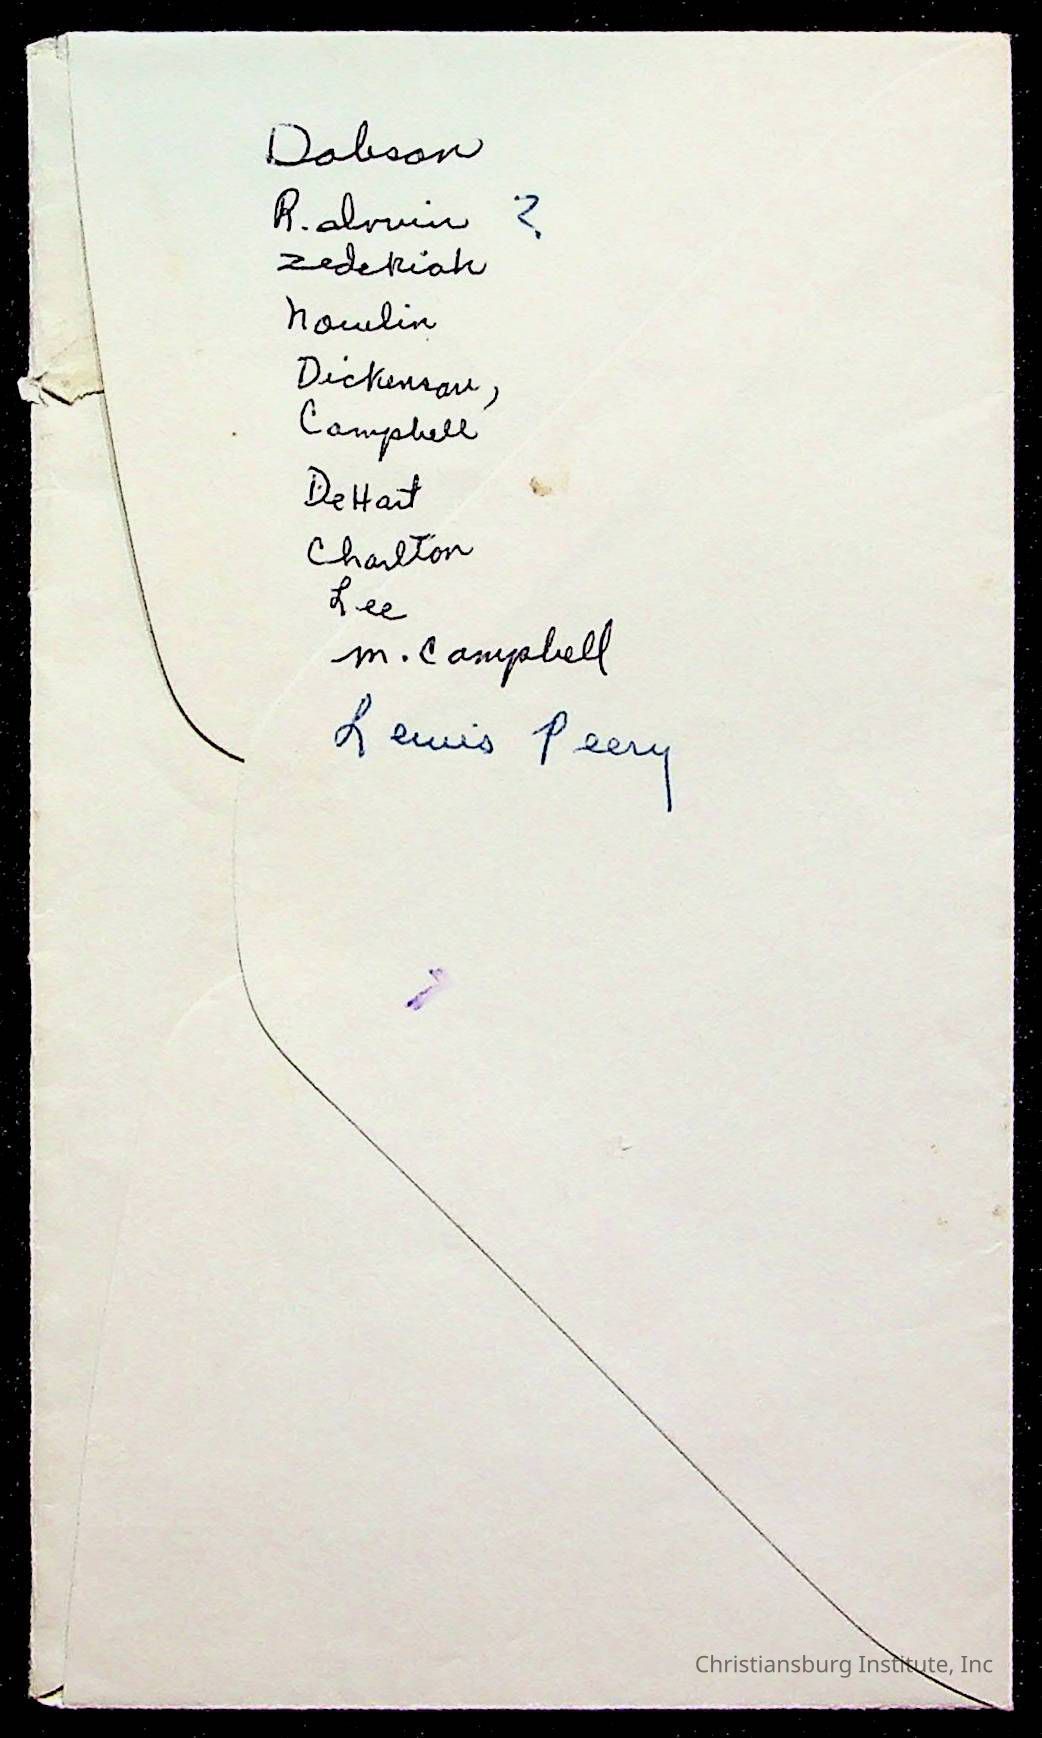 Dobson
R. Alvin ?
Zedekiah
Nowlin
Dickenson,
Campbell
DeHart
Charlton
Lee
M. Campbell
Lewis Peery
Christiansburg Institute, Inc